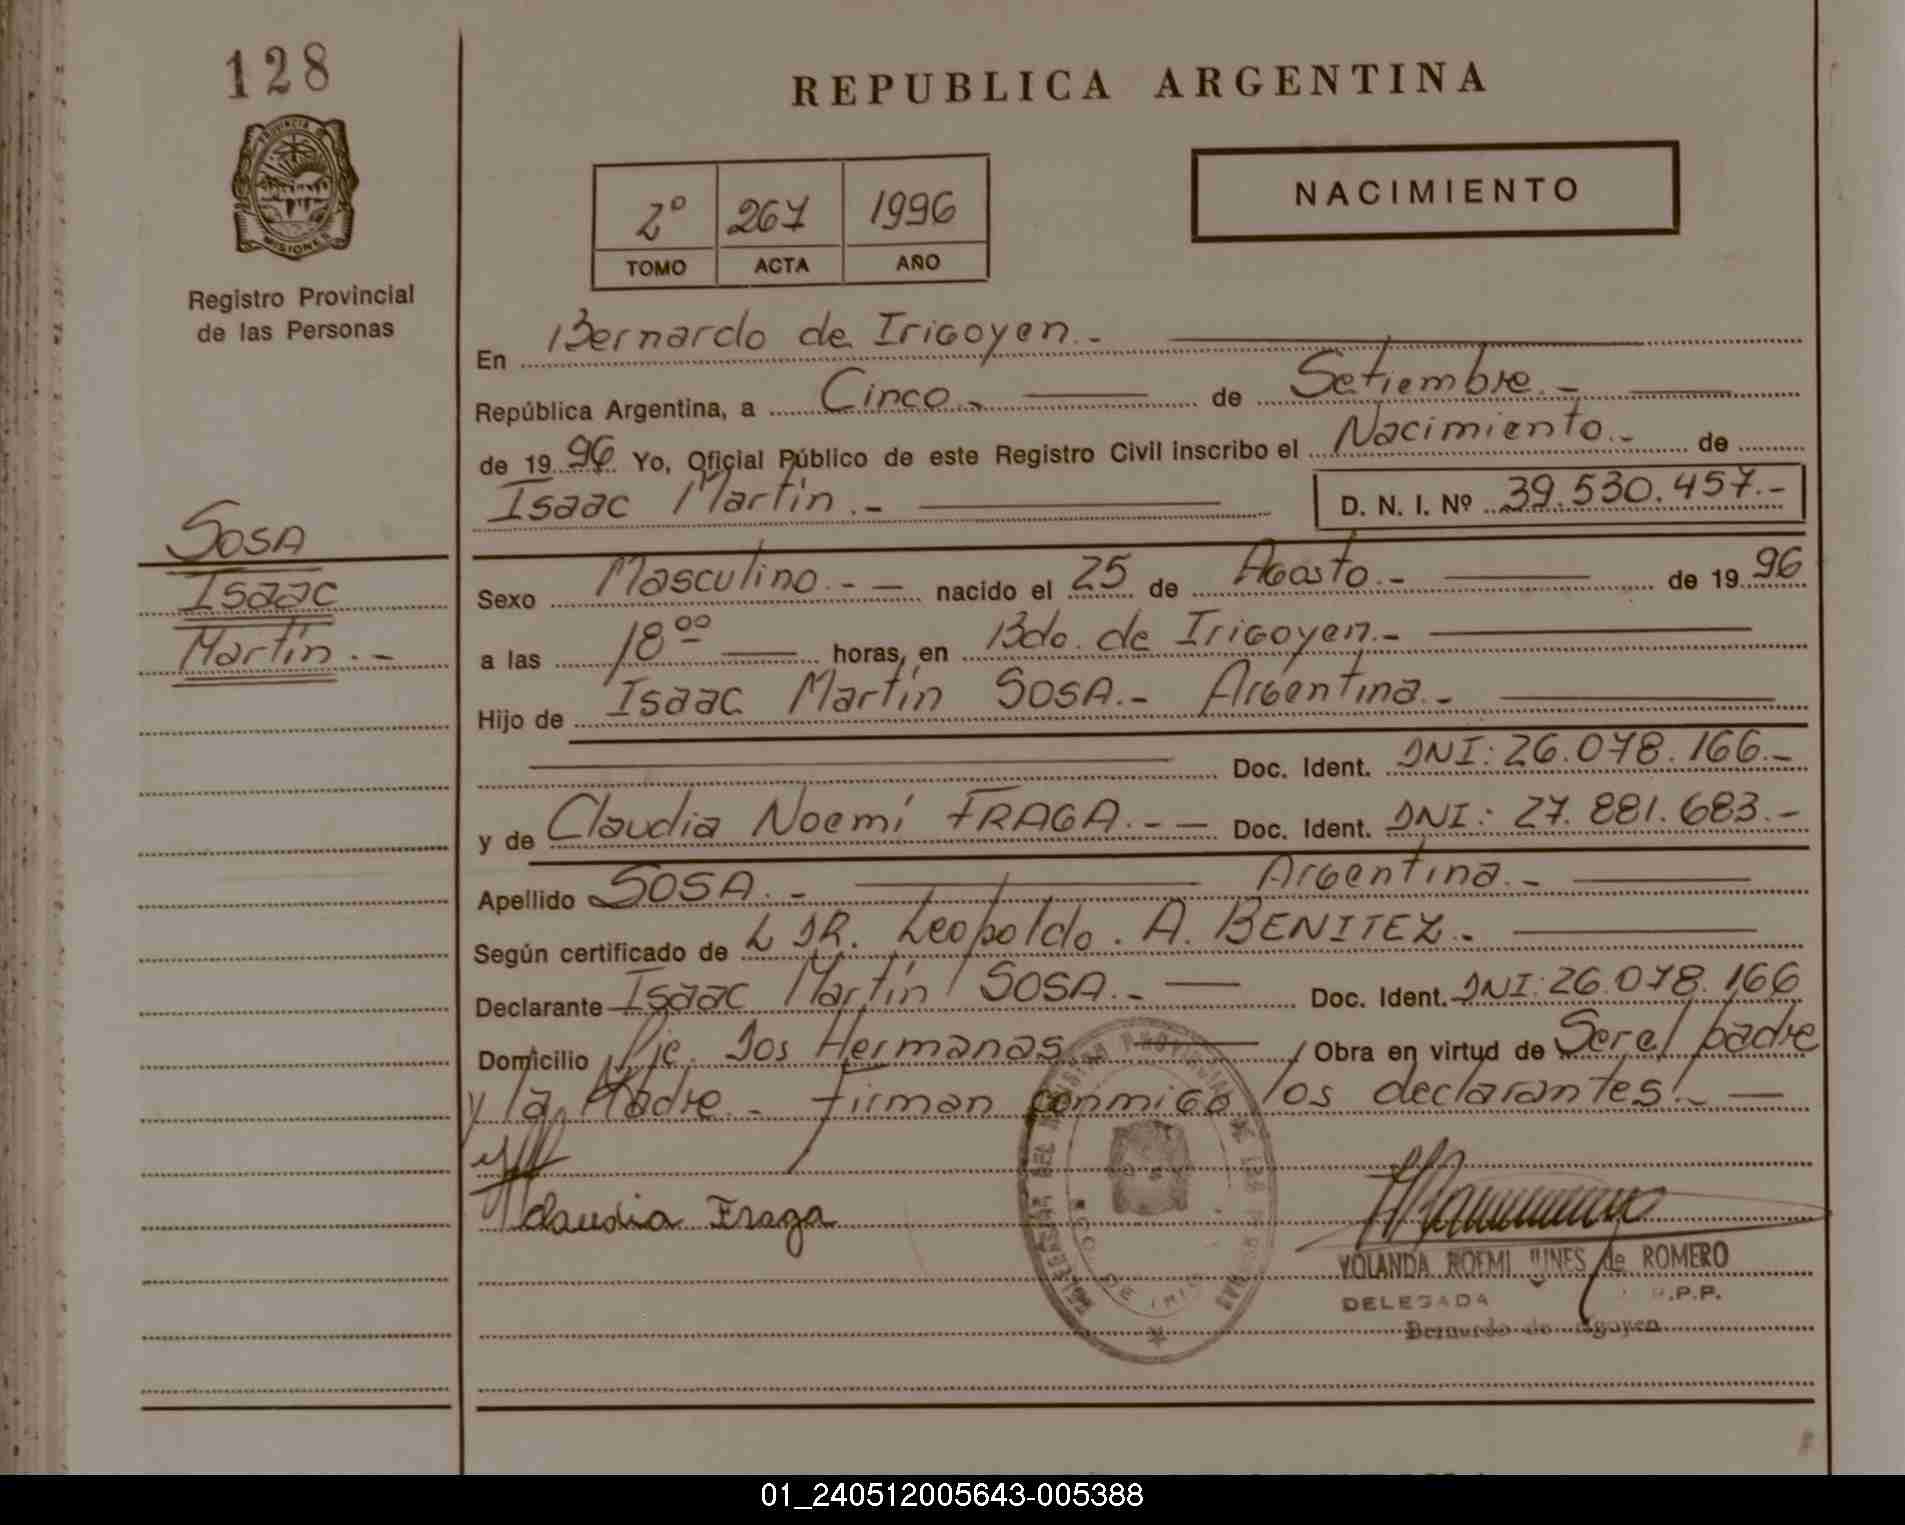 128
PROVINCIA DE
MISIONES
Registro Provincial
de las Personas
REPUBLICA ARGENTINA
2º 267 1996
TOMO ACTA AÑO
NACIMIENTO
En Bernardo de Irigoyen.-
República Argentina, a Cinco.- de Setiembre.-
de 1996 Yo, Oficial Público de este Registro Civil inscribo el Nacimiento.- de
Isaac Martín.- D. N. I. Nº 39.530.457.-
SOSA
Isaac
Martín.-
Sexo Masculino.- nacido el 25 de Agosto.- de 1996
a las 18 00 horas, en Bdo. de Irigoyen.-
Hijo de Isaac Martín SOSA.- Argentina.-
Doc. Ident. DNI: 26.078.166.-
y de Claudia Noemí FRAGA.- Doc. Ident. DNI: 27.881.683.-
Apellido SOSA.- Argentina.-
Según certificado de DR. Leopoldo. A. BENITEZ.-
Declarante Isaac Martín SOSA.- Doc. Ident. DNI: 26.078.166
Domicilio Pje. Dos Hermanas Obra en virtud de Ser el padre
y la Madre.- Firman conmigo los declarantes.-
Claudia Fraga
YOLANDA NOEMI de ROMERO
DELEGADA .P.P.
Bernardo de Irigoyen
01_240512005643-005388